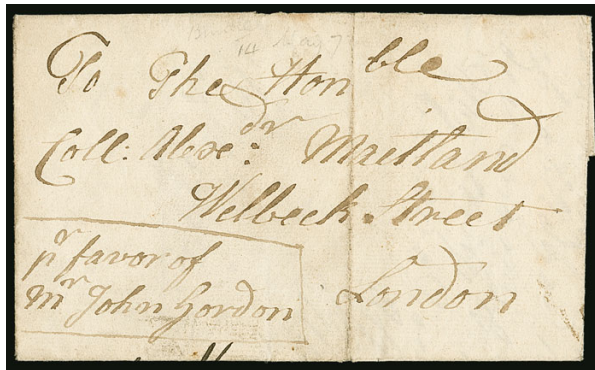 14 May 7
To The Honble
Coll: Alexr: dr Maitland
Welbeck Street
pr favor of
mr John Gordon
London